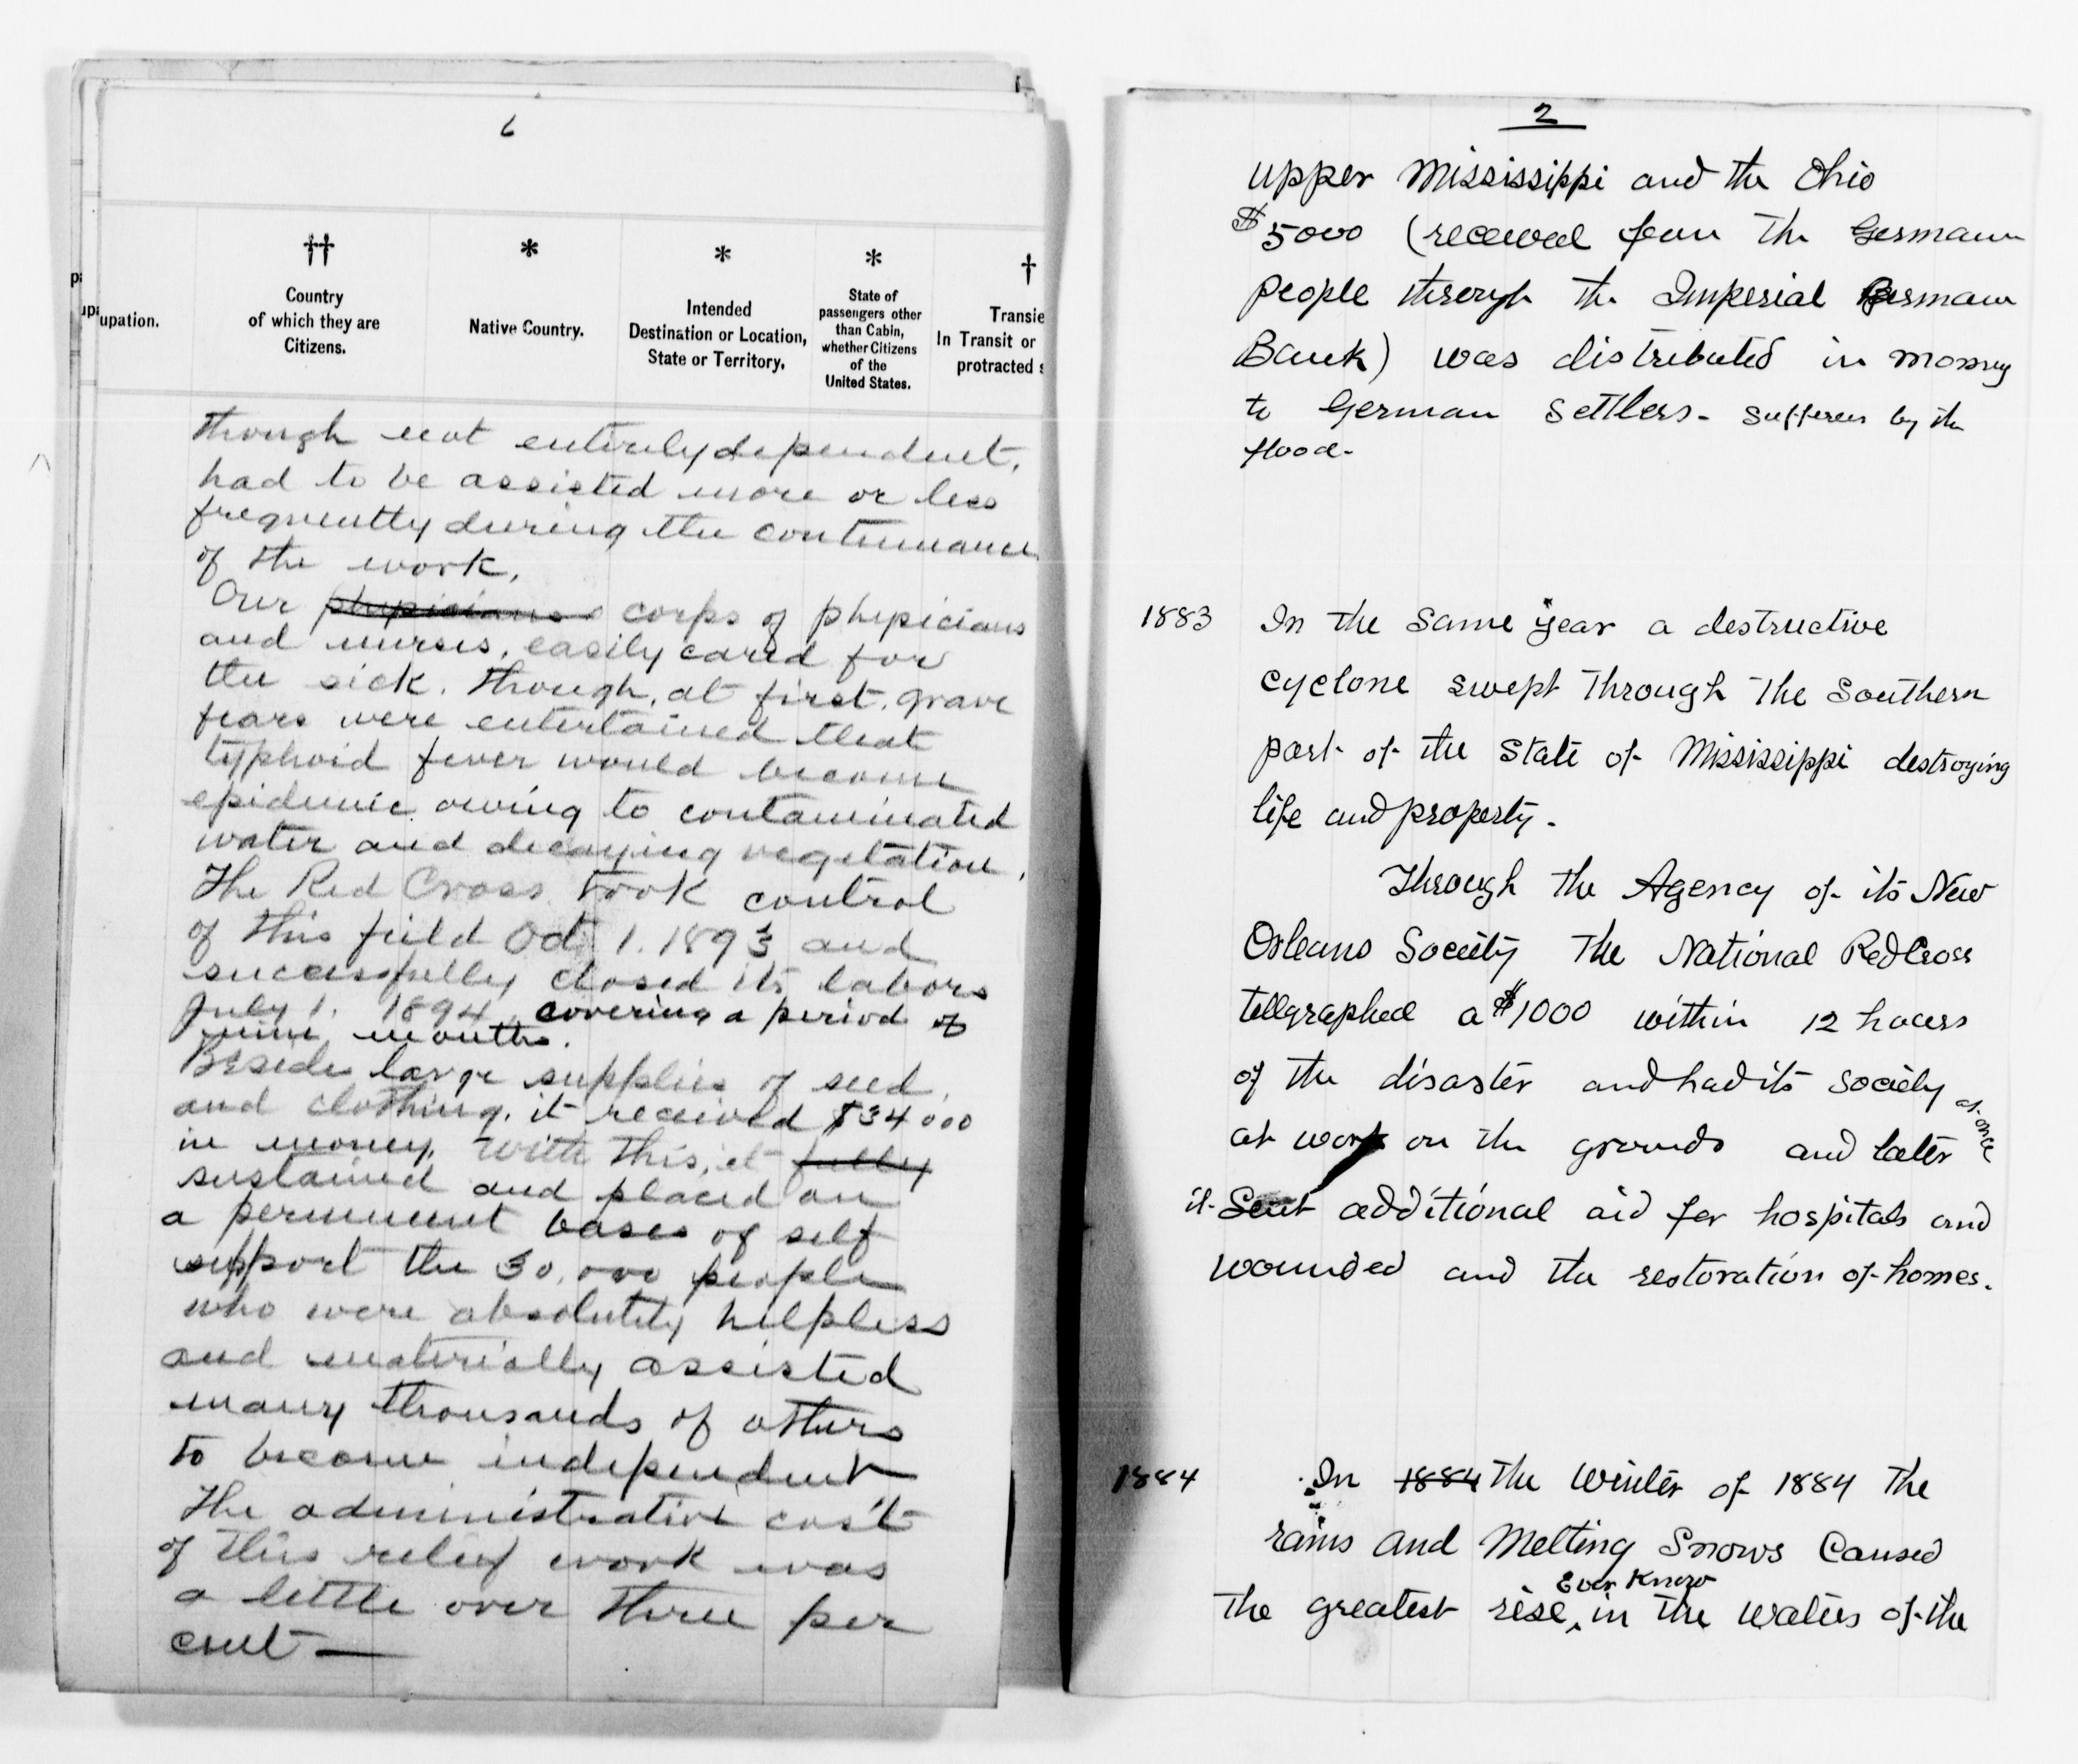 6
††
Country
of which they are
Citizens.
*
Native Country.
*
Intended
Destination or Location,
State or Territory.
*
State of
passengers other
than Cabin,
whether Citizens
of the
United States.
†
Transie
In Transit or
protracted s
upation.
though not entirely dependent,
had to be assisted more or less
frequently during the continuance
of the work.
Our physicians corps of physicians
and nurses, easily cared for
the sick. Though, at first, grave
fears were entertained that
typhoid fever would become
epidemic owing to contaminated
water and decaying vegetation.
The Red Cross took control
of this field Oct 1. 1893 and
successfully closed its labors
July 1. 1894, covering a period of
nine months.
Beside large supplies of seed,
and clothing, it received $34000
in money. With this, it fully
sustained and placed on
a permenent bases of self
support the 30,000 people
who were absolutely helpless
and materially assisted
many thousands of others
to become independent
The administrative cost
of this relief work was
a little over three per
cent —
2
upper Mississippi and the Ohio
$5000 (received from the German
people through the Imperial German
Bank) was distributed in money
to German settlers - sufferers by the
flood.
1883 In the same year a destructive
cyclone swept through the Southern
part of the State of Mississippi destroying
life and property.
Through the Agency of its New
Orleans Society the National Red Cross
tellgraphed a $1000 within 12 hours
of the disaster and had its society at once
at work on the grounds and later
it sent additional aid for hospitals and
wounded and the restoration of homes.
1884 In 1884 the winter of 1884 the
rains and Melting Snows Caused
Ever Know
the greatest rise, in the waters of the